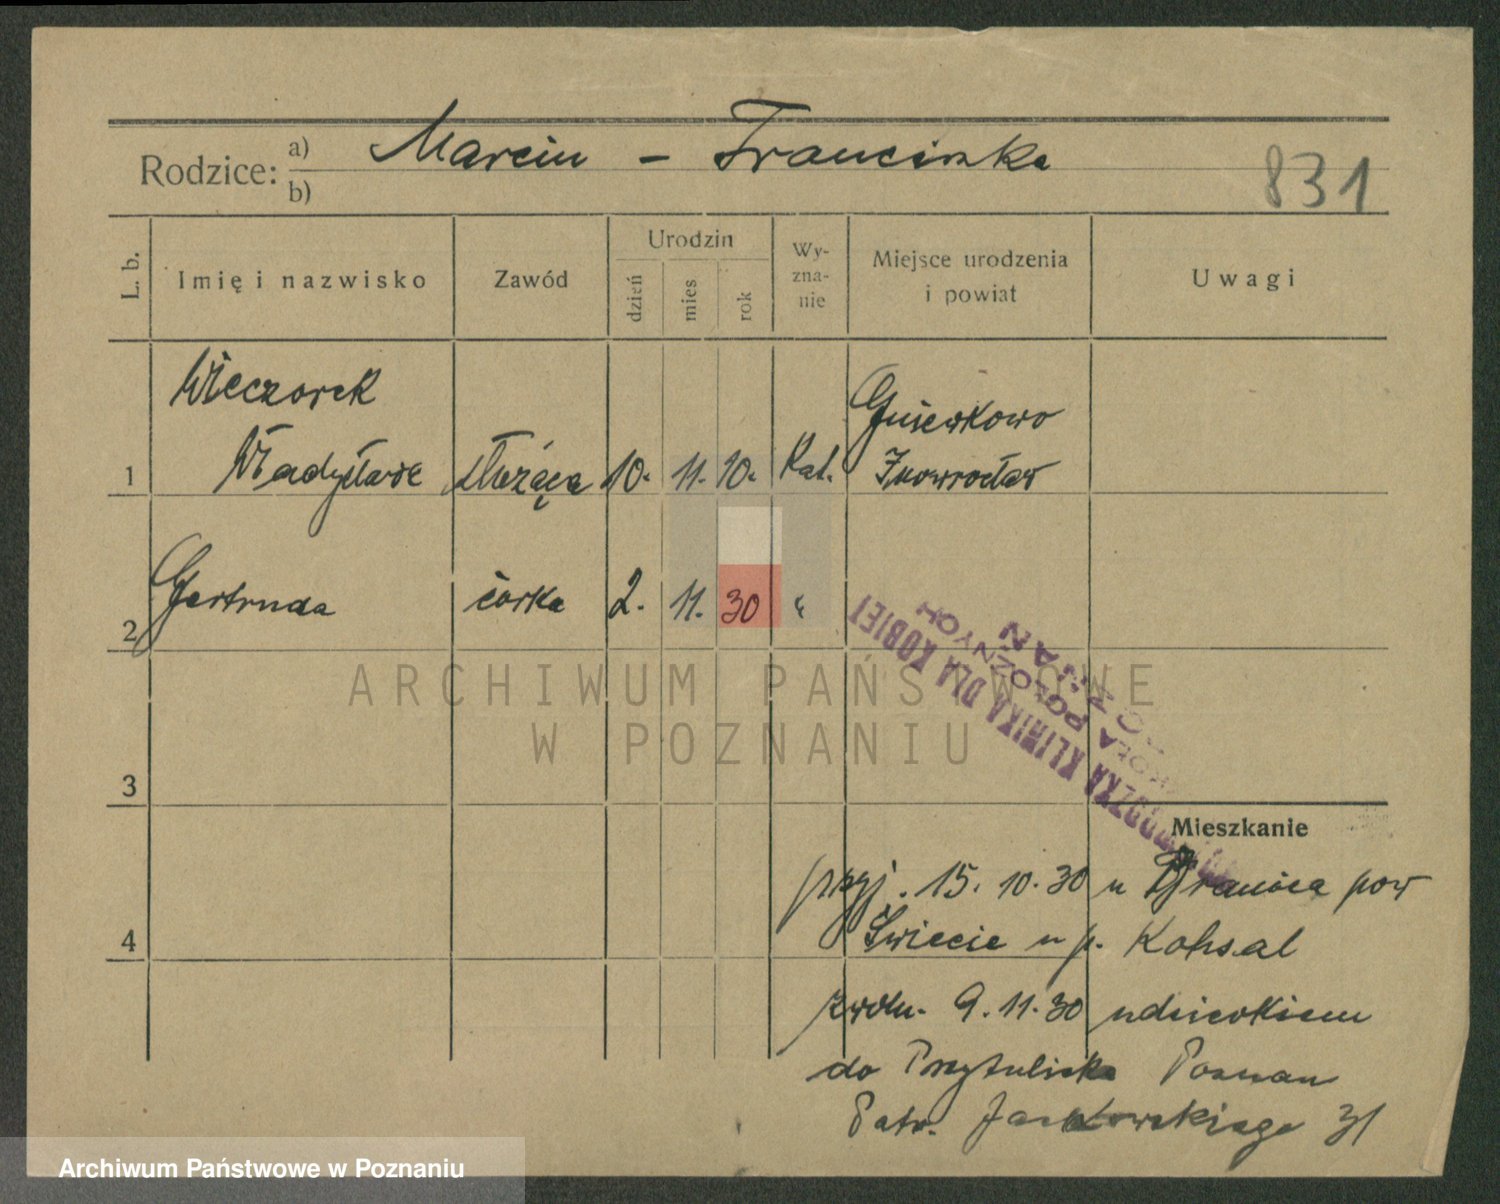 Rodzice: a) Marcin - Franciszka
b)
831
L. b.
Imię i nazwisko
Zawód
Urodzin
dzień
mies
rok
Wy-
zna-
nie
Miejsce urodzenia
i powiat
Uwagi
Wieczorek
Gniewkowo
1 Władysława służąca 10. 11. 10. Kat. Inowrocław
2 Gertruda córka 2. 11. 30 "
KLINIKA DLA KOBIET
POŁOŻNYCH
ARCHIWUM PAŃSTWOWE
W POZNANIU
3
Mieszkanie
przyj. 15. 10. 30 u pow
4 Świecie u p. Kohsal
zwoln. 9. 11. 30 z dzieckiem
do Przytuliska Poznan
Patr. Jackowskiego 31
Archiwum Państwowe w Poznaniu